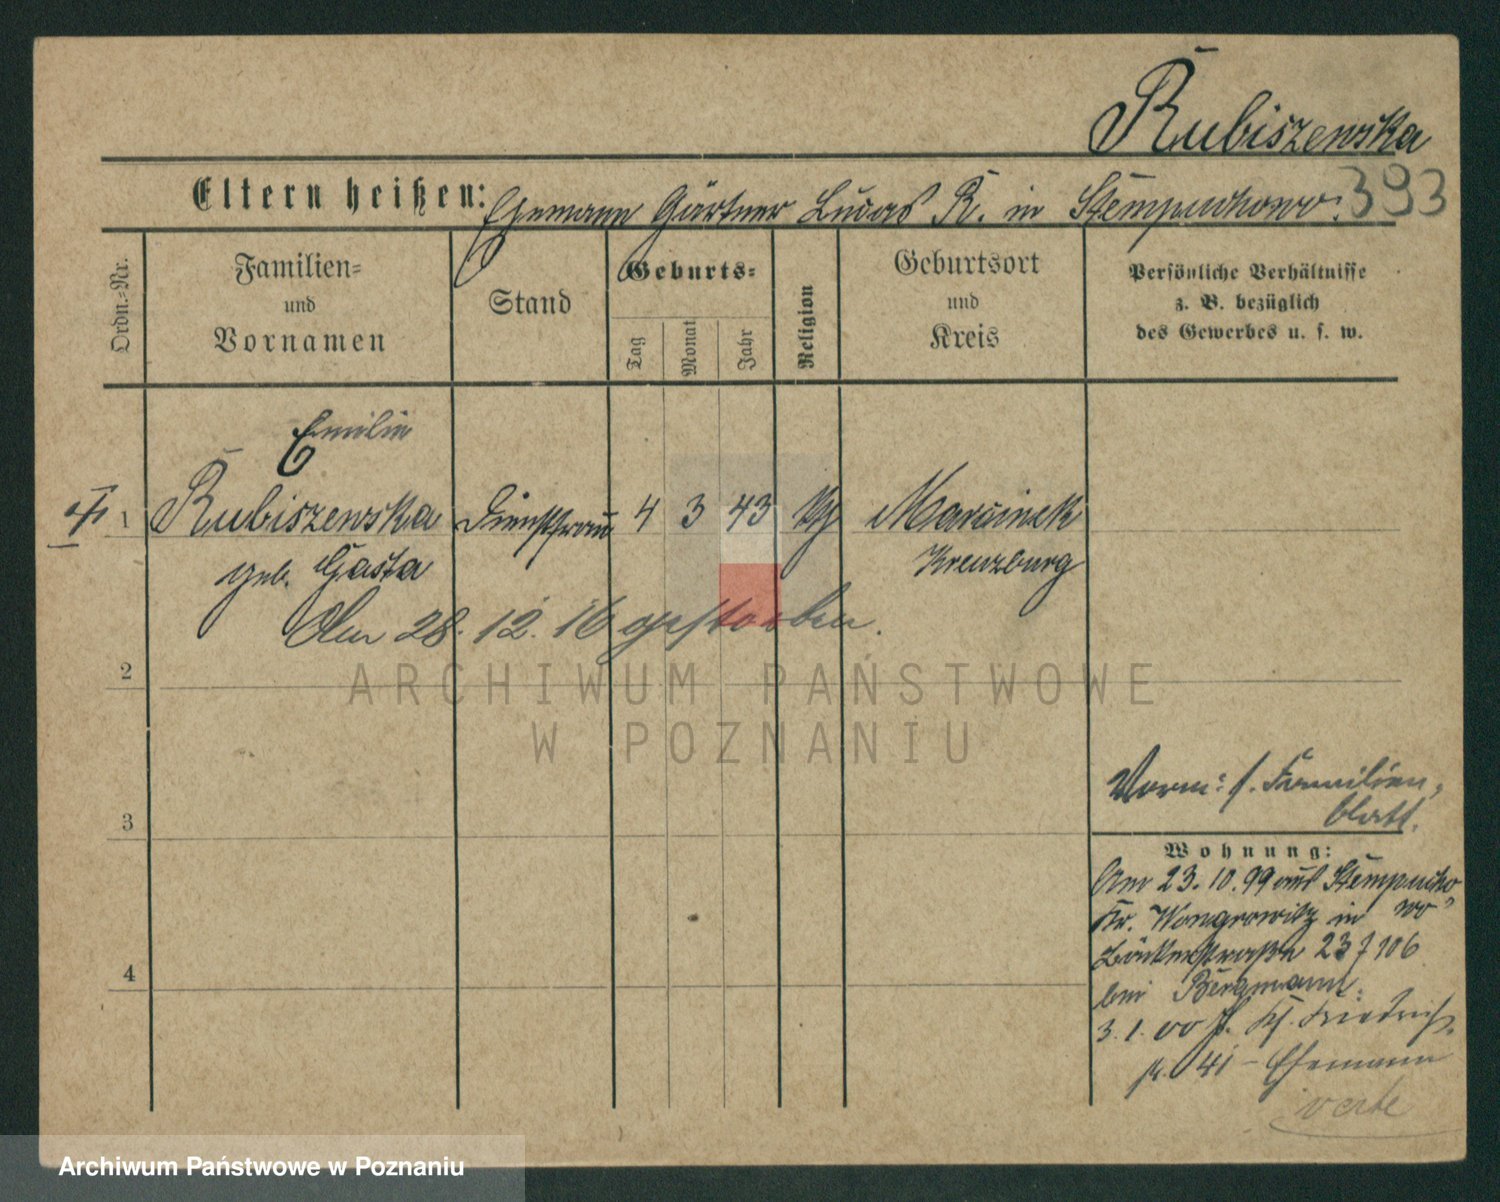 Rubiszewska
Eltern heißen: Ehemann Gärtner Lucas R. in Stempuchowo.
393
Ordn.-Nr.
Familien-
und
Vornamen
Stand
Geburts-
Tag
Monat
Jahr
Religion
Geburtsort
und
Kreis
Persönliche Verhältnisse
z. B. bezüglich
des Gewerbes u. s. w.
Emilie
1 Rubiszewska Dienstfrau 4 3 43 Marcinek
geb. Gasta Kreuzburg
Am 28. 12. 16 gestorben.
2
ARCHIWUM PAŃSTWOWE
W POZNANIU
Vorm: s. Familien-
blatt.
3
Wohnung:
Am 23. 10. 99 aus Stempucho
Kr. Wongrowitz in wo
Bäckerstraße 23 f 106
bei Bergmann.
3. 1. 00 Kl. Friedrich
41 - Ehemann
verte
4
Archiwum Państwowe w Poznaniu